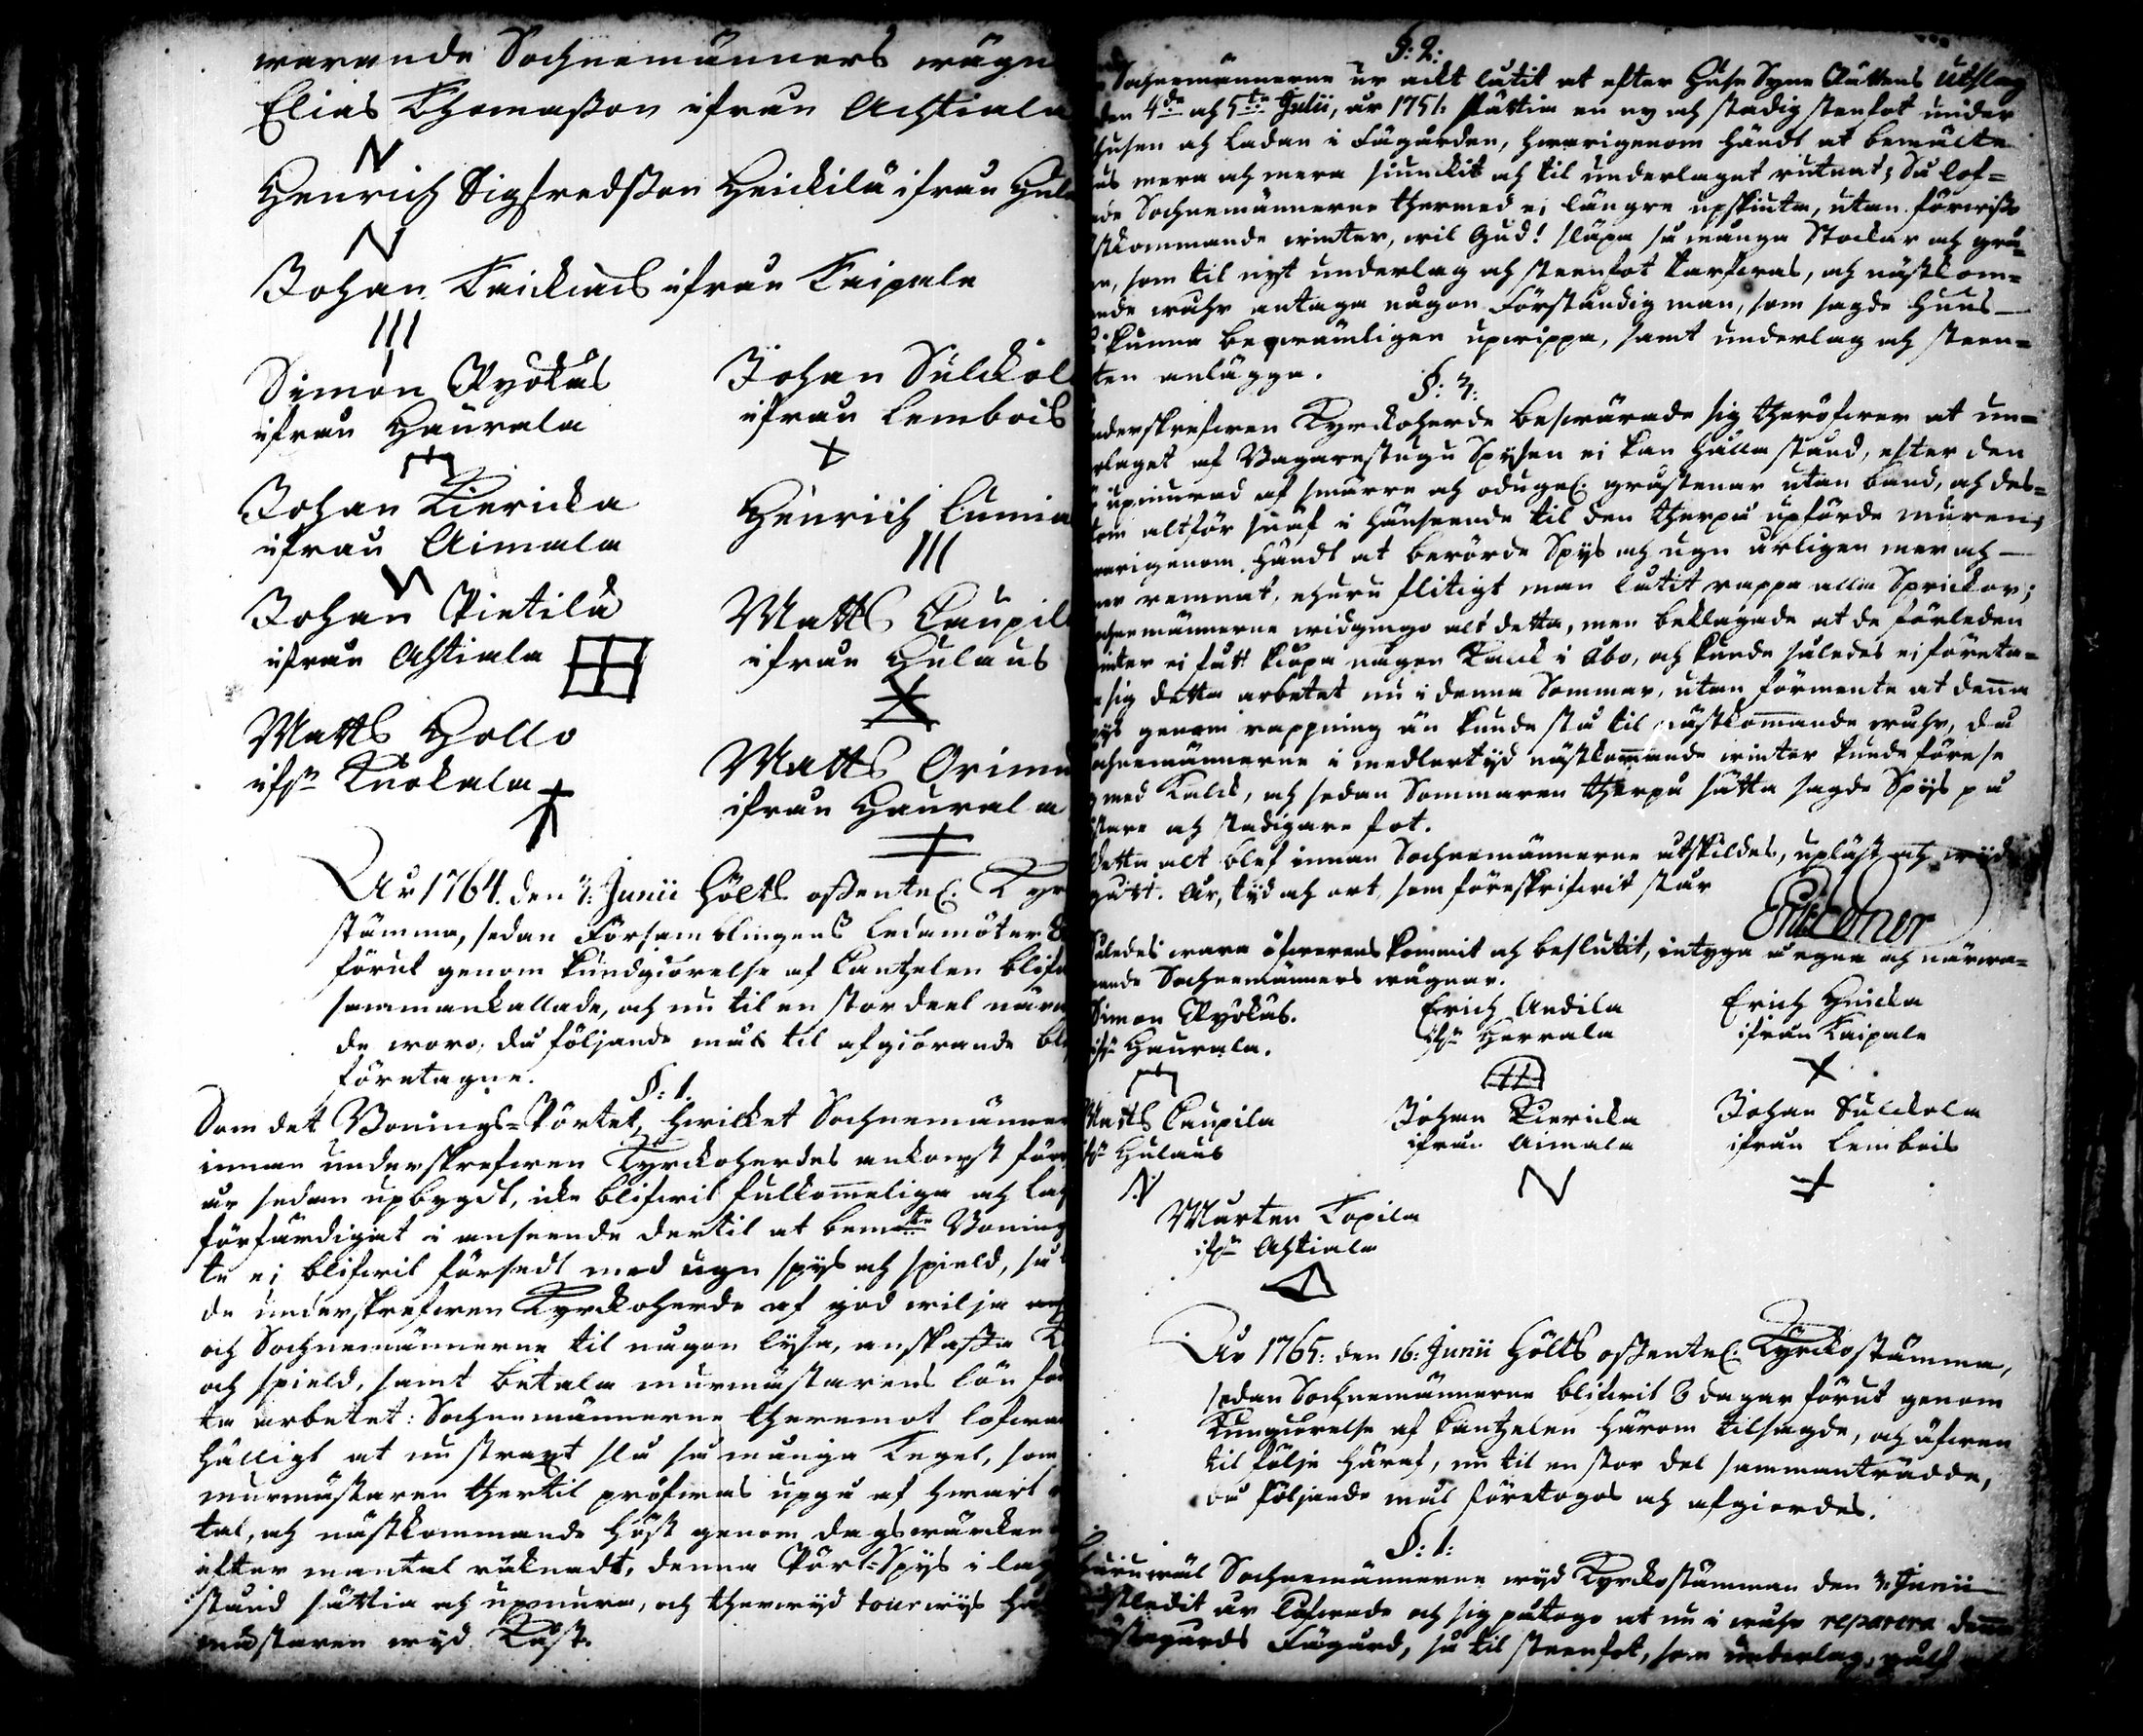 warande Sochnemänners wägn
Elias Thomasson ifrån Achtiala
Henrich Sigfredsson Heickilä ifrån Hula
Johan Kaickiais ifrån Kaipala
Simon Ryökäs
ifrån Haurala
Johan Sulckol
ifrån Lembois
Johan Kiericka
ifrån Aimala
Henrich Lumia
Johan Pietilä
ifrån Achtiala
Matts Caupil
ifrån Hulaus
Matts Hollo
ifrn Kuokala
Matts Orimu
ifrån Haurala
År 1764. den 3: Junii hölts offentel: Kyr
stämma, sedan Församblingens ledamöter
förut genom kundgiörelse af Cantzelen blif
sammankallade, och nu til en stor deel närw
de woro; då följande mål til afgiörande bl
företagne.
§: 1.
Som det Bonings-Pörtet, hwilket Sochnemänne
innan underskrefwen Kyrckoherdes ankomst för
år sedan upbygdt, icke blifwit fulkommeliga och lag
förfärdigat i anseende dertil at bemte Boning
te ej blifwit försedt med ugn spys och spield, så
de underskrefwen Kyrckoherde af god wilja
och Sochnemännerne til någon lysa, anskaffa
och spield, samt betala murmästarens lön för
ta arbetet: Sochnemännerne theremot lofwa
hälligt at nu straxt slå så många Tegel, som
murmästaren thertil pröfwas upgå af hwart
tal, och nästkommande höst genom dagswärcken
efter mantal räknadt, denna Pört-Spys i lag
stånd sättia och upmura, och therwyd tourwys
mästaren wyd Kåst.
§: 2:
Sochnemännerne år acht lutit at efter Huse Syne Rättens Utslag
den 4de och 5te Julii, år 1751. sättia en ny och stadig stenfot under
husen och Ladan i Fägården, hwarigenom händt at bemälte
us mera och mera siunckit och til underlaget rutnat; Så lof=
de Sochnemännerne thermed ej längre upskiuta, utan förwiss
stkommande winter, wil Gud! släpa så många Stockar och grå=
n, som til nyt underlag och steenfot tarfwas, och nästkom=
nde wåhr antaga någon Förståndig man, som sagde Huus
kunna beqwämligen upwippa, samt underlag och steen=
ten anlägga.
§: 3:
nderskrefwen Kyrckoherde beswärade sig theröfwer at un=
rlaget af Bagarestugu Spysen ei kan hålla stånd, efter den
upmurad af smärre och odugel: gråstenar utan band, och des=
tom altför snäf i hänseende til den therpå upförde muren;
warigenom händt at berörde Spys och ugn årligen mer och
mer remnat, ehuru flitigt man låtit rappa alla Sprickor;
ochnemännerne widgingo alt detta, men beklagade at de förleden
inter ei fått kiöpa någon Kalck i Åbo, och kunde således ei företa=
sig detta arbetet nu i denna Sommar, utan förmente at denna
pys genom rappning än kunde stå til nästkommande wåhr, då
ochnemännerne i medlertyd nästkommande winter kunde förese
med Kalck, och sedan Sommaren therpå sätta sagde Spys på
stare och stadigare fot.
Detta alt blef innan Sochnemännerne åtskildes, upläst och wyd
gått. År, tyd och ort, som föreskrifwit står
Således wara öfwerenskommit och beslutit, intyga å egna och närwa=
rande Sochnemänners wägnar.
Simon Ryökäs.
ifrn Haurala.
Erich Andila
ifrn Herrala
Erich Heicka
ifrån Kaipala
Matts Caupila
ifrn Hulaus
Johan Kiericka
ifrån Aimala
Johan Sulckola
ifrån Lembois
Mårten Topila
ifrn Achtiala
År 1765: den 16: Junii hölts offentel: Kyrckostämma,
sedan Sochnemännerne blifwit 8 dagar förut genom
Kungiörelse af Cantzelen härom tilsagde, och äfwen
til följe häraf, nu til en stor del sammanträdde,
då följande mål företogos och afgiordes.
§: 1:
huruwäl Sochnemännerne wyd Kyrckostämman den 3: Junii
stledit år lofwade och sig påtogo at nu i wåhr reparera denna
stegårds Fägård, så til steenfot, som underlag,